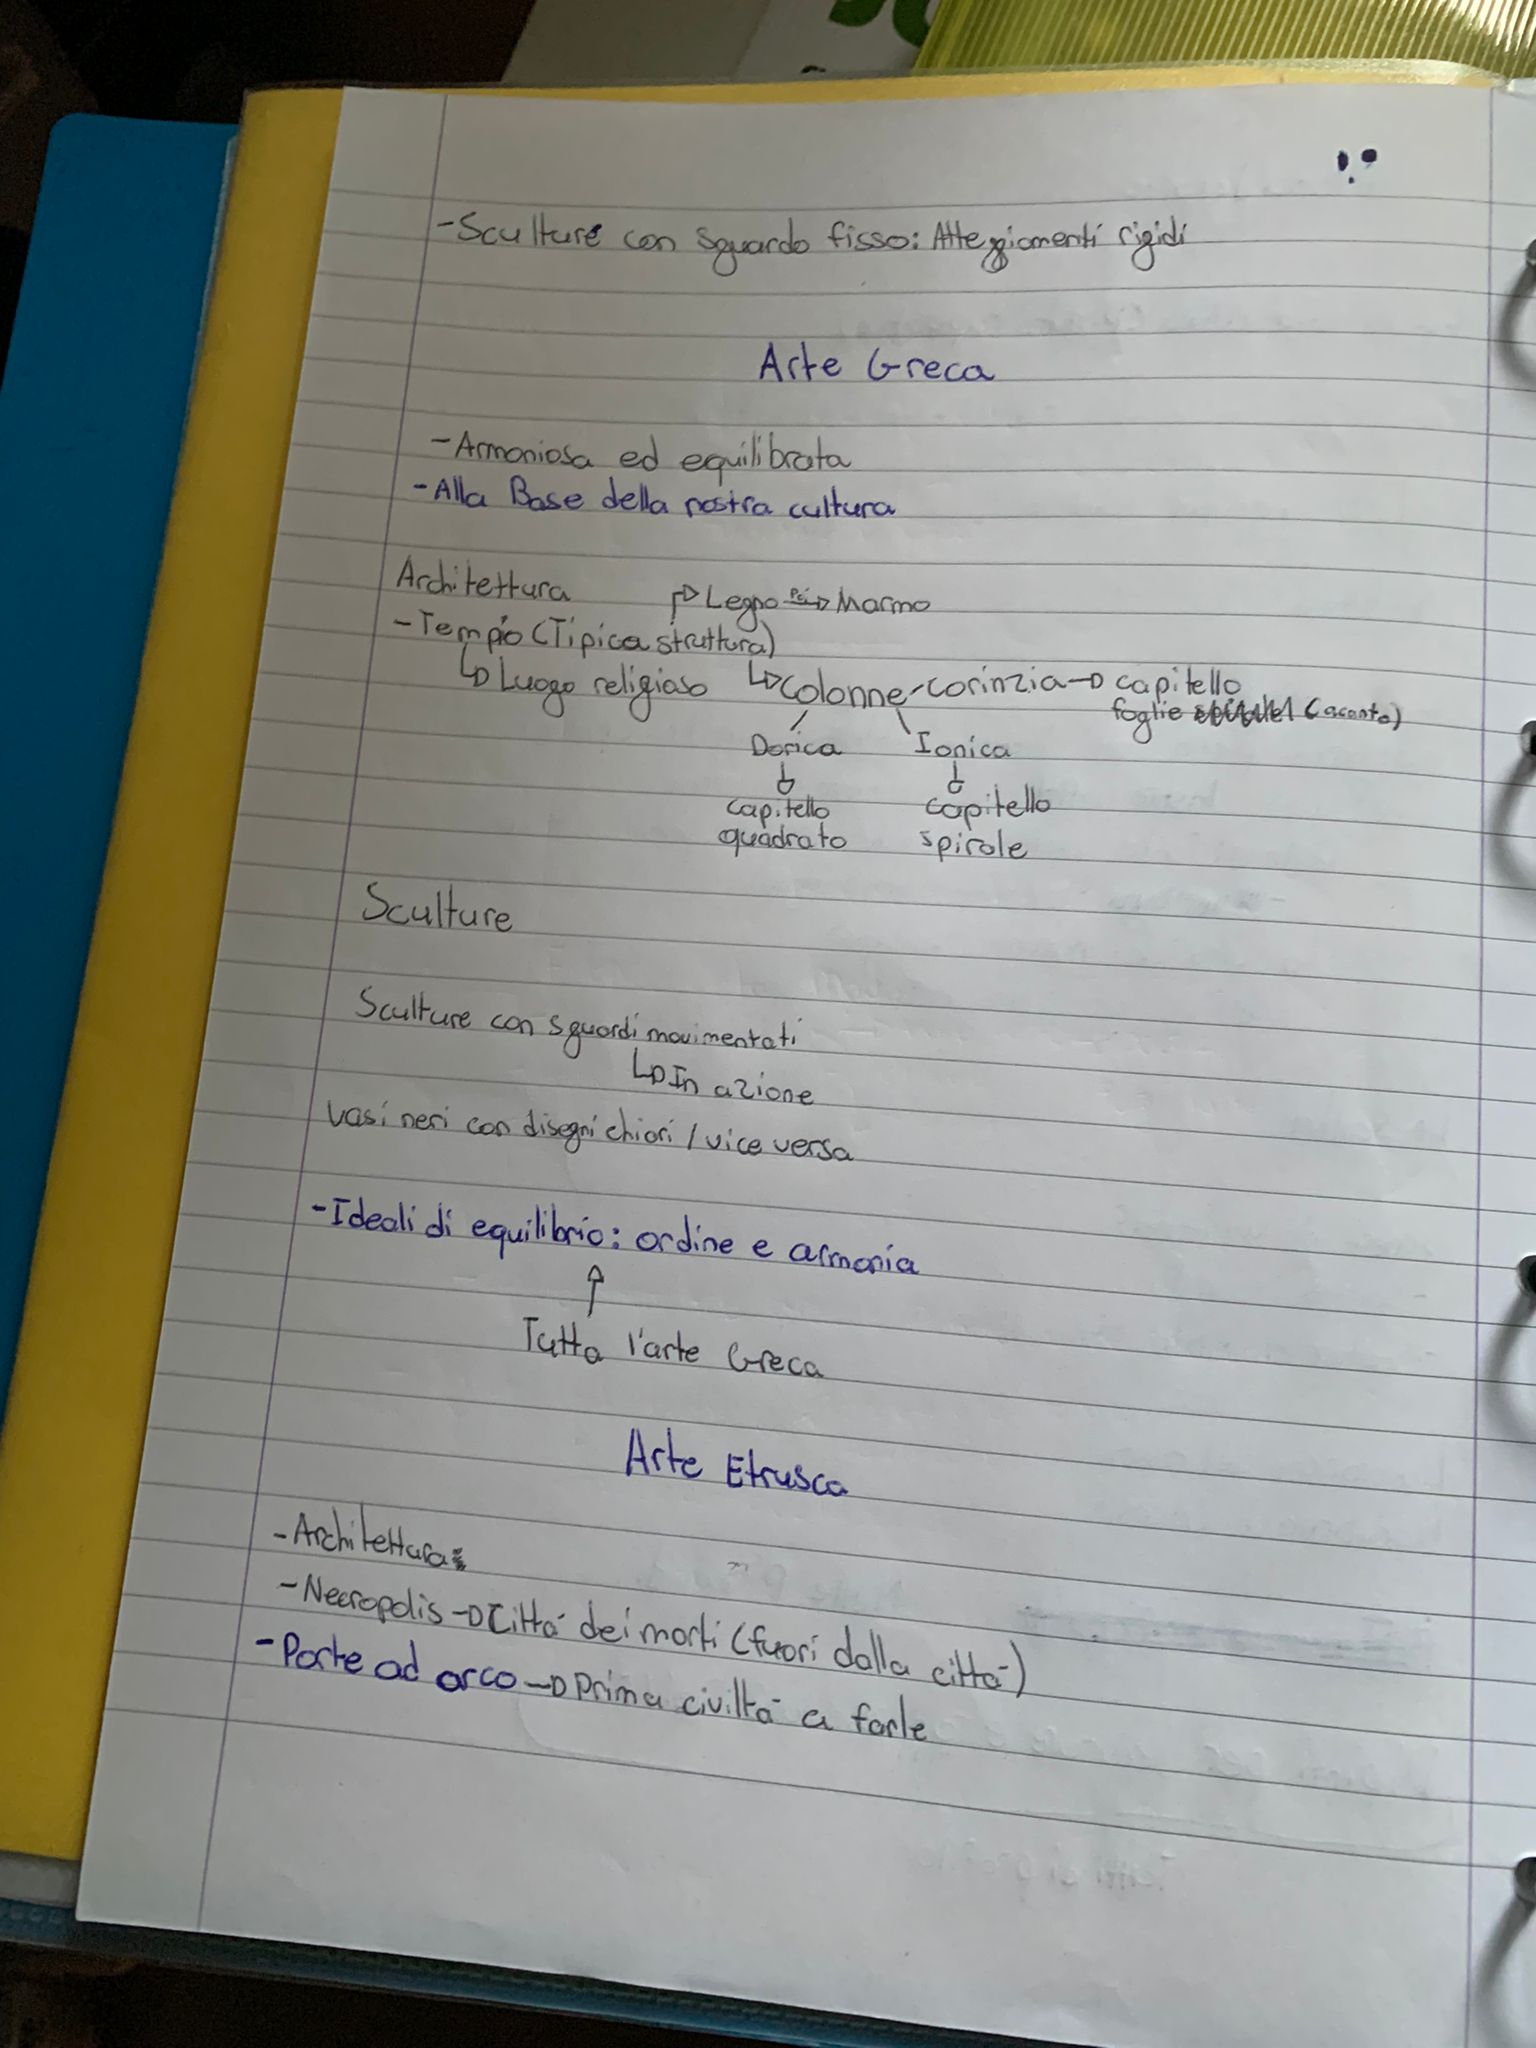 - Sculture con sguardo fisso: Atteggiamenti rigidi
Arte Greca
- Armoniosa ed equilibrata
- Alla Base della nostra cultura
Architettura
↱ Legno poi→ Marmo
- Tempio (Tipica struttura)
↳ Luogo religioso ↳ colonne - corinzia → capitello
foglie (acanto)
Dorica Ionica
↓ ↓
capitello capitello
quadrato spirale
Sculture
Sculture con sguardi movimentati
↳ In azione
vasi neri con disegni chiari / vice versa
- Ideali di equilibrio: ordine e armonia
↑
Tutta l'arte Greca
Arte Etrusca
- Architettura:
- Necropolis → Città dei morti (fuori dalla città)
- Porte ad arco → Prima civiltà a farle